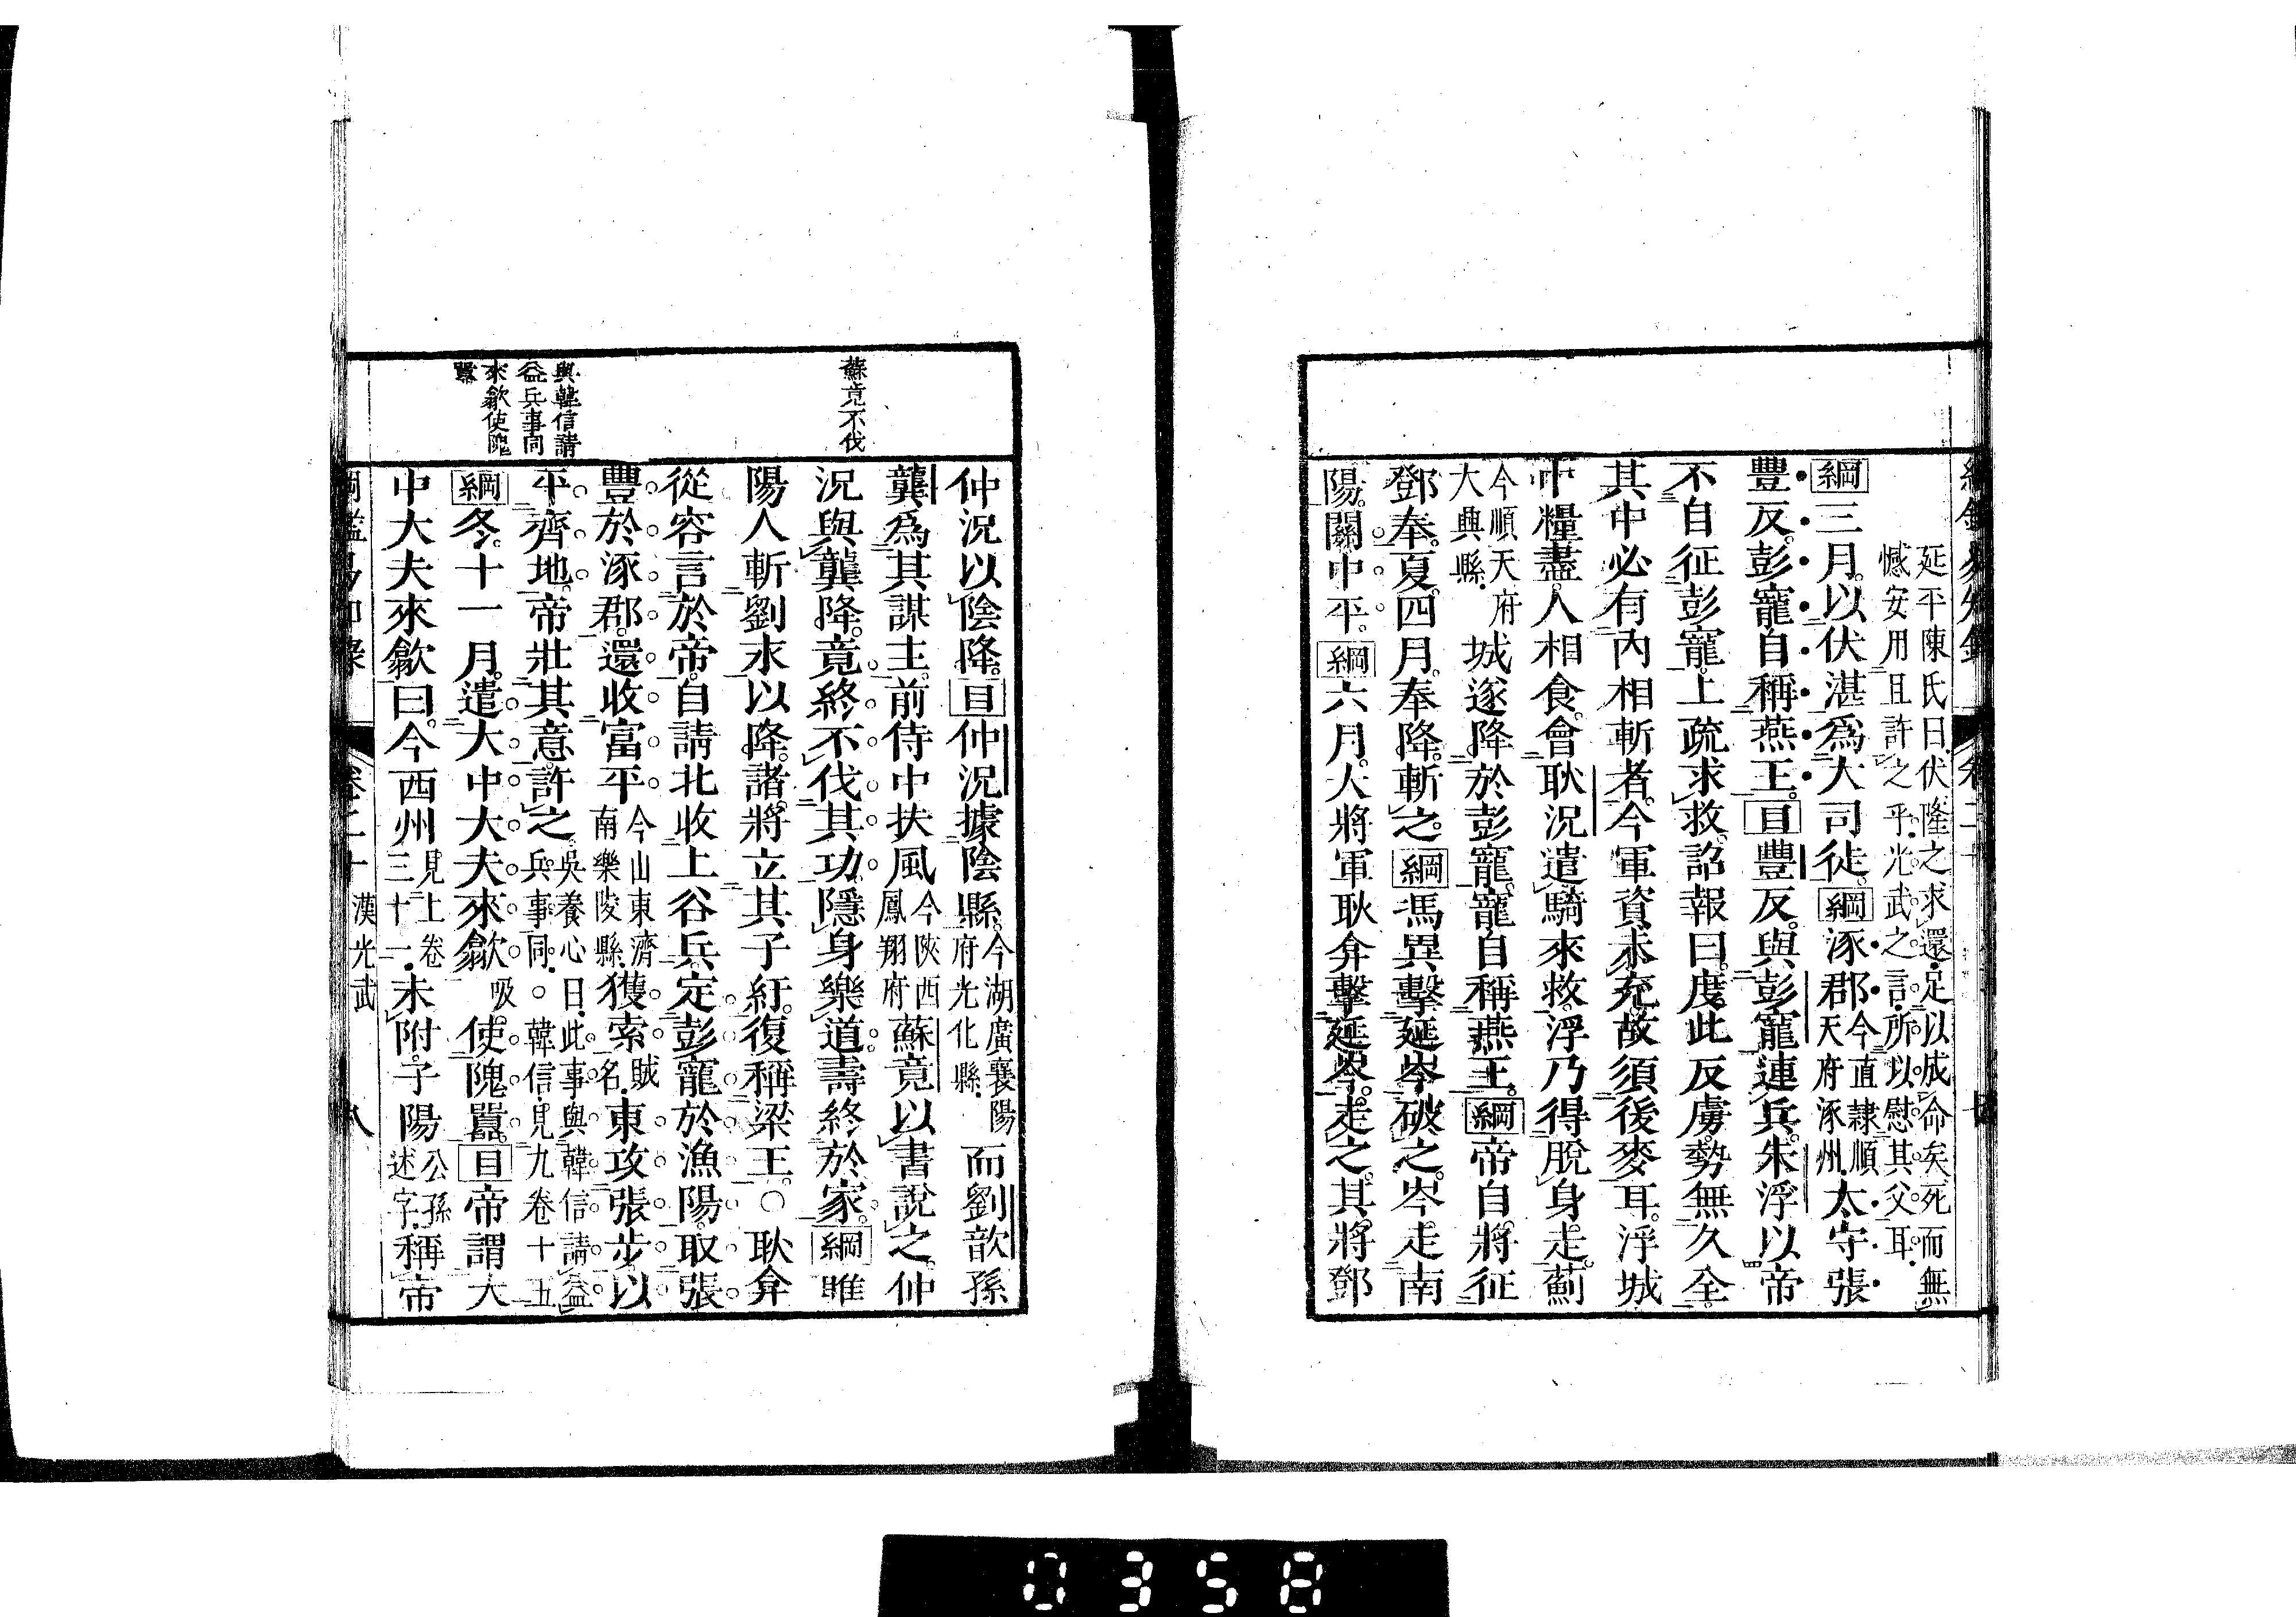 延平陳氏曰伏隆之求還足以成命矣死而無
憾安用且許之乎光武之言所以慰其父耳
綱三月以伏湛爲大司徒綱涿郡今直隷順天府涿州太守張
豐反彭寵自稱燕王目豐反與彭寵連兵朱浮以帝
不自征彭寵上疏求救詔報曰度此反虜勢無久全
其中必有內相斬者今軍資未充故須後麥耳浮城
中糧盡人相食會耿況遣騎來救浮乃得脫身走薊
今順天府大興縣城遂降於彭寵寵自稱燕王綱帝自將征
鄧奉夏四月奉降斬之綱馮異擊延岑破之岑走南
陽關中平綱六月大將軍耿弇擊延岑走之其將鄧
仲況以陰降目仲況據陰縣今湖廣襄陽府光化縣而劉歆孫
龔爲其謀主前侍中扶風今陝西鳳翔府蘇竟以書說之仲
況與龔降竟終不伐其功隱身樂道壽終於家綱睢
陽人斬劉永以降諸將立其子紆復稱梁王○耿弇
從容言於帝自請北收上谷兵定彭寵於漁陽取張
豐於涿郡還收富平今山東濟南樂陵縣獲索賊名東攻張步以
平齊地帝壯其意許之吳養心曰此事與韓信請益兵事同○韓信見九卷十五
綱冬十一月遣大中大夫來歙吸使隗囂目帝謂大
中大夫來歙曰今西州見上卷三十一未附子陽公孫述字稱帝
蘇竟不伐
與韓信請
益兵事同
來歙使隗
囂
卷二十 漢光武 八
0358